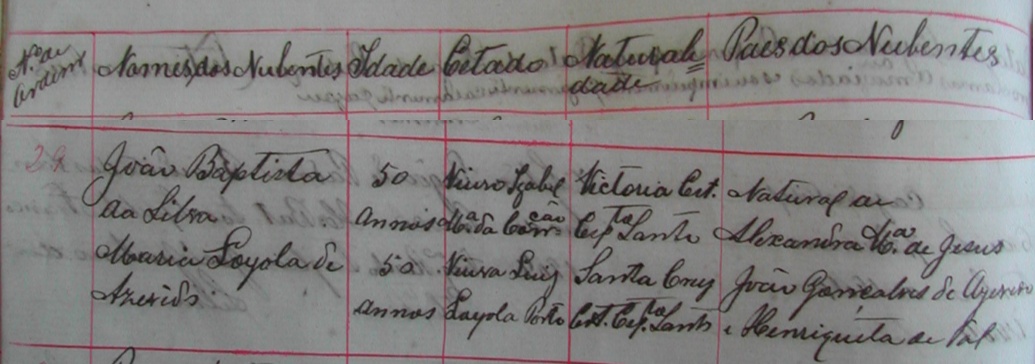 Nº de ordem Nomes dos Nubentes Idade Estado Naturali= Paes dos Nubentes
dade
28 João Baptista 50 Viuvo Izabel Victoria Est. Natural de
da Silva annos M.ª da Comᶜᵃᵒ Esp.ᵗᵒ Santo Alexandra M.ª de Jesus
Maria Loyola de 50 Viuva Luiz Santa Cruz João Gonçalves de Azevedo
Azevedo annos Loyola Porto Est. Esp.ᵗᵒ Santo e Henriqueta de Tal